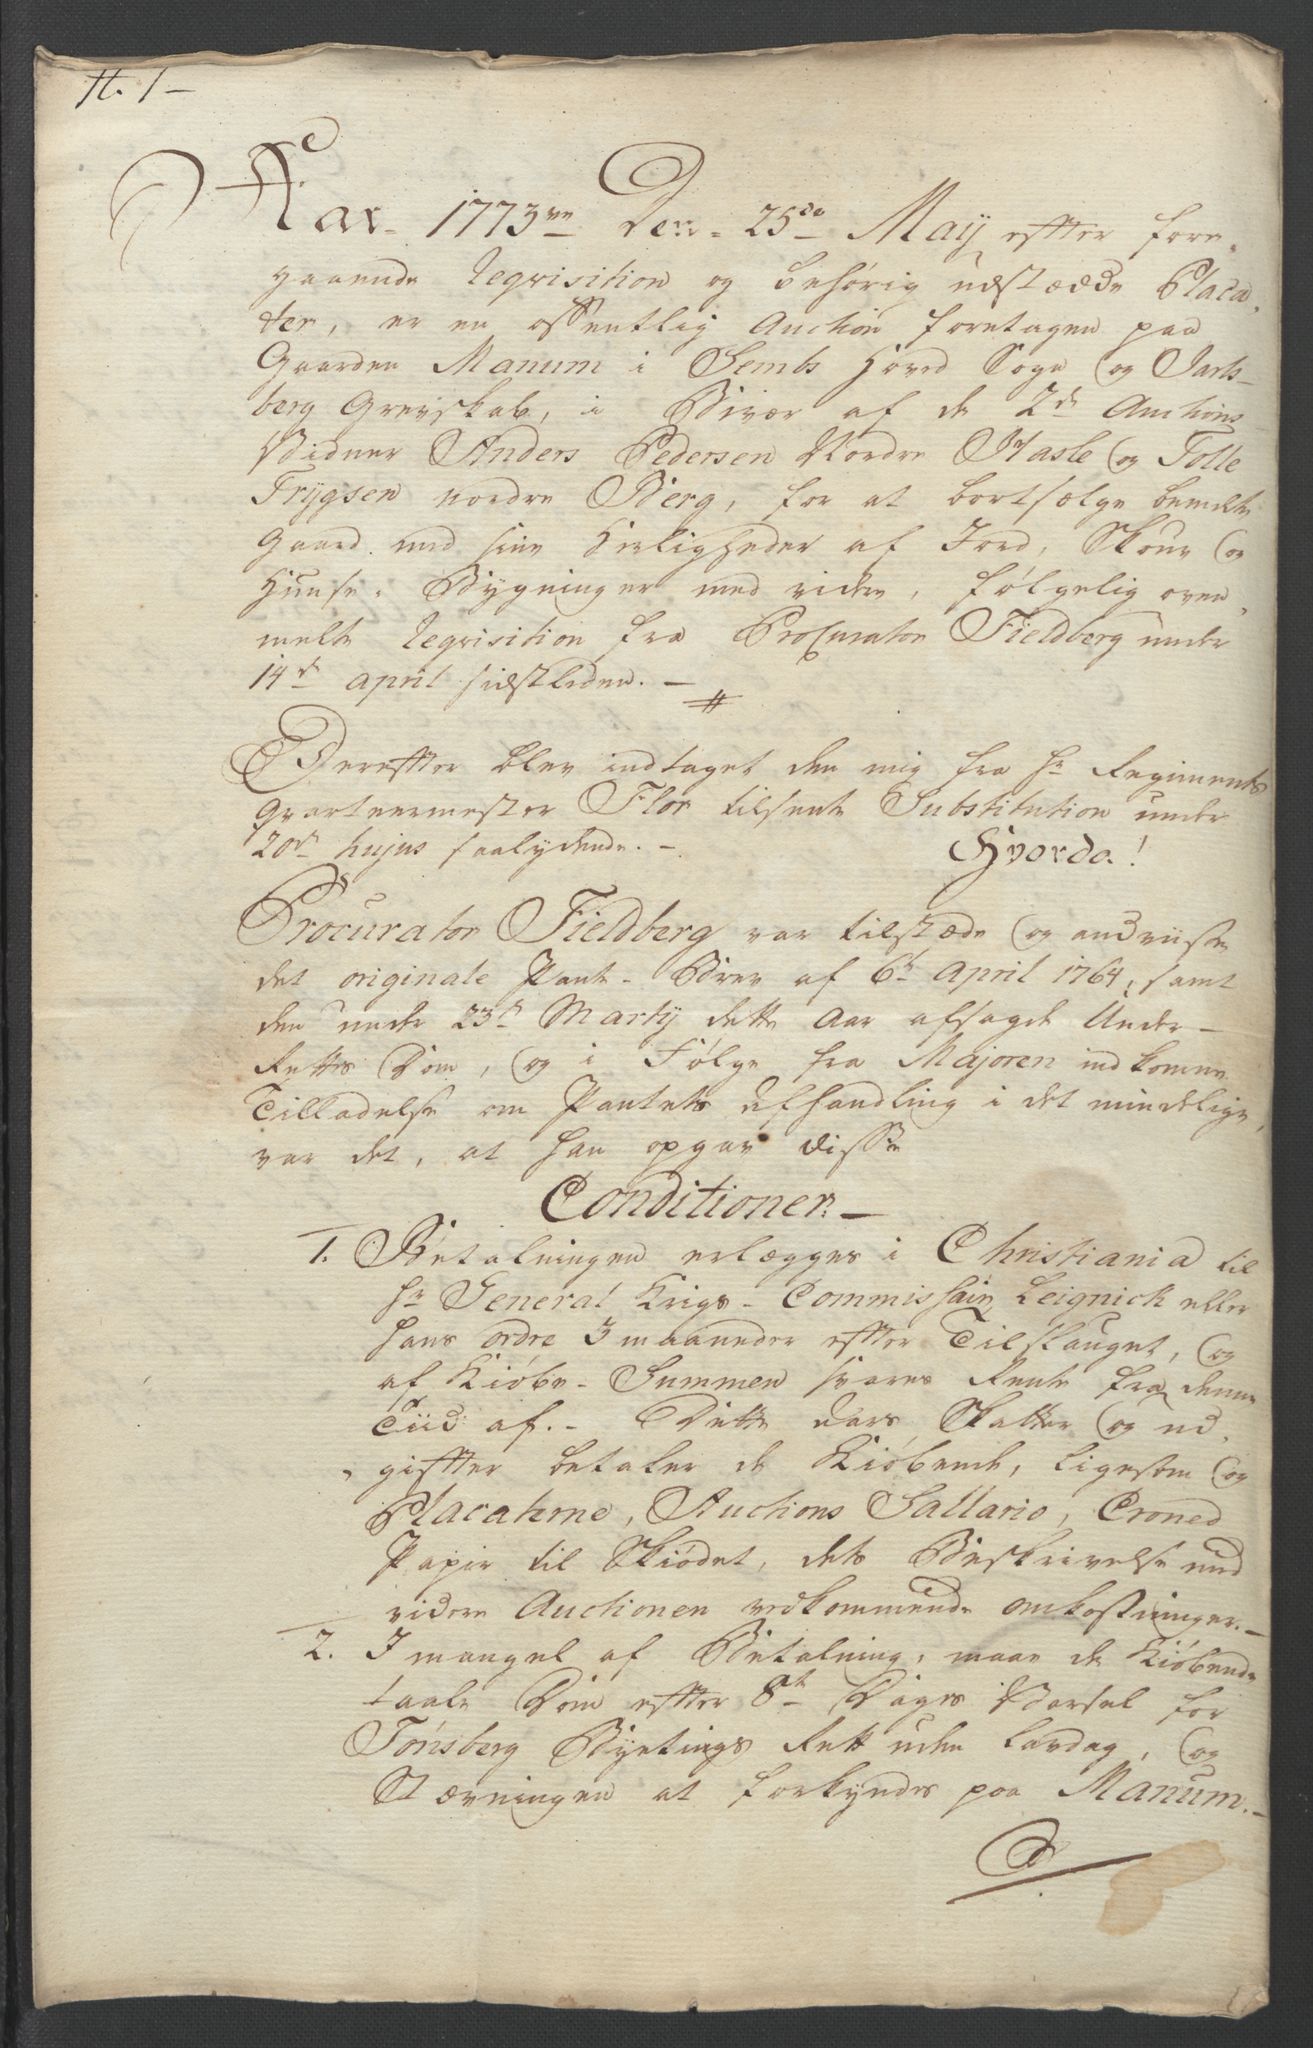 N. 1 –
Aar 1773ve Den 25de Maij effter fore-
gaaende Reqvisition og behørig udstædde Placa-
ter, er en offentlig Auction foretagen paa
Gaarden Manum i Sembs Hoved Sogn og Jarls-
berg Grevskab, i Bivær af de 2de Auctions
Vidner Anders Pedersen Nordre Hasle og Tolle
Trygsen nordre Berg, for at bortsælge bemelte
Gaard med sine Herligheder af Jord, Skouv og
Huuse-Bygninger med videre, følgelig oven-
melte Reqvisition fra Procurator Fieldberg under
14de april sidstleden. –
Dereffter blev indtaget den mig fra Hr Regiments
Qvarteermester Flor tilsente Substitution under
20de hujus saalydende. – Hvorda!
Procurator Fieldberg var tilstæde og andviiste
det originale Pant-Brev af 6te April 1764, samt
den under 23de Martij dette Aar afsagde Under-
Retts Dom, og i Følge fra Majoren indkomne
Tilladelse om Pantets Afhandling i det mindelige,
var det, at han opgav disse
Conditioner –
1. Betalningen erlægges i Christiania til
Hr General Krigs-Commissair Leignick eller
hans ordre 3 maaneder effter Tilslauget, og
af Kiøbe-Summen svares Rente fra denne
Tiid af. – Dette Aars Skatter og ud-
giffter betaler de Kiøbende, ligesom og
Placaterne, Auctions Sallario, Croned
Papir til Skiødet, dets Beskrivelse med
videre Auctionen vedkommende omkostninger. –
2. I mangel af Betalning, maae de Kiøbende
taale Dom effter 8te Dages Varsel for
Tønsberg Byetings Rett uden Lavdag, og
Stævningen at forkyndes paa Manum. –